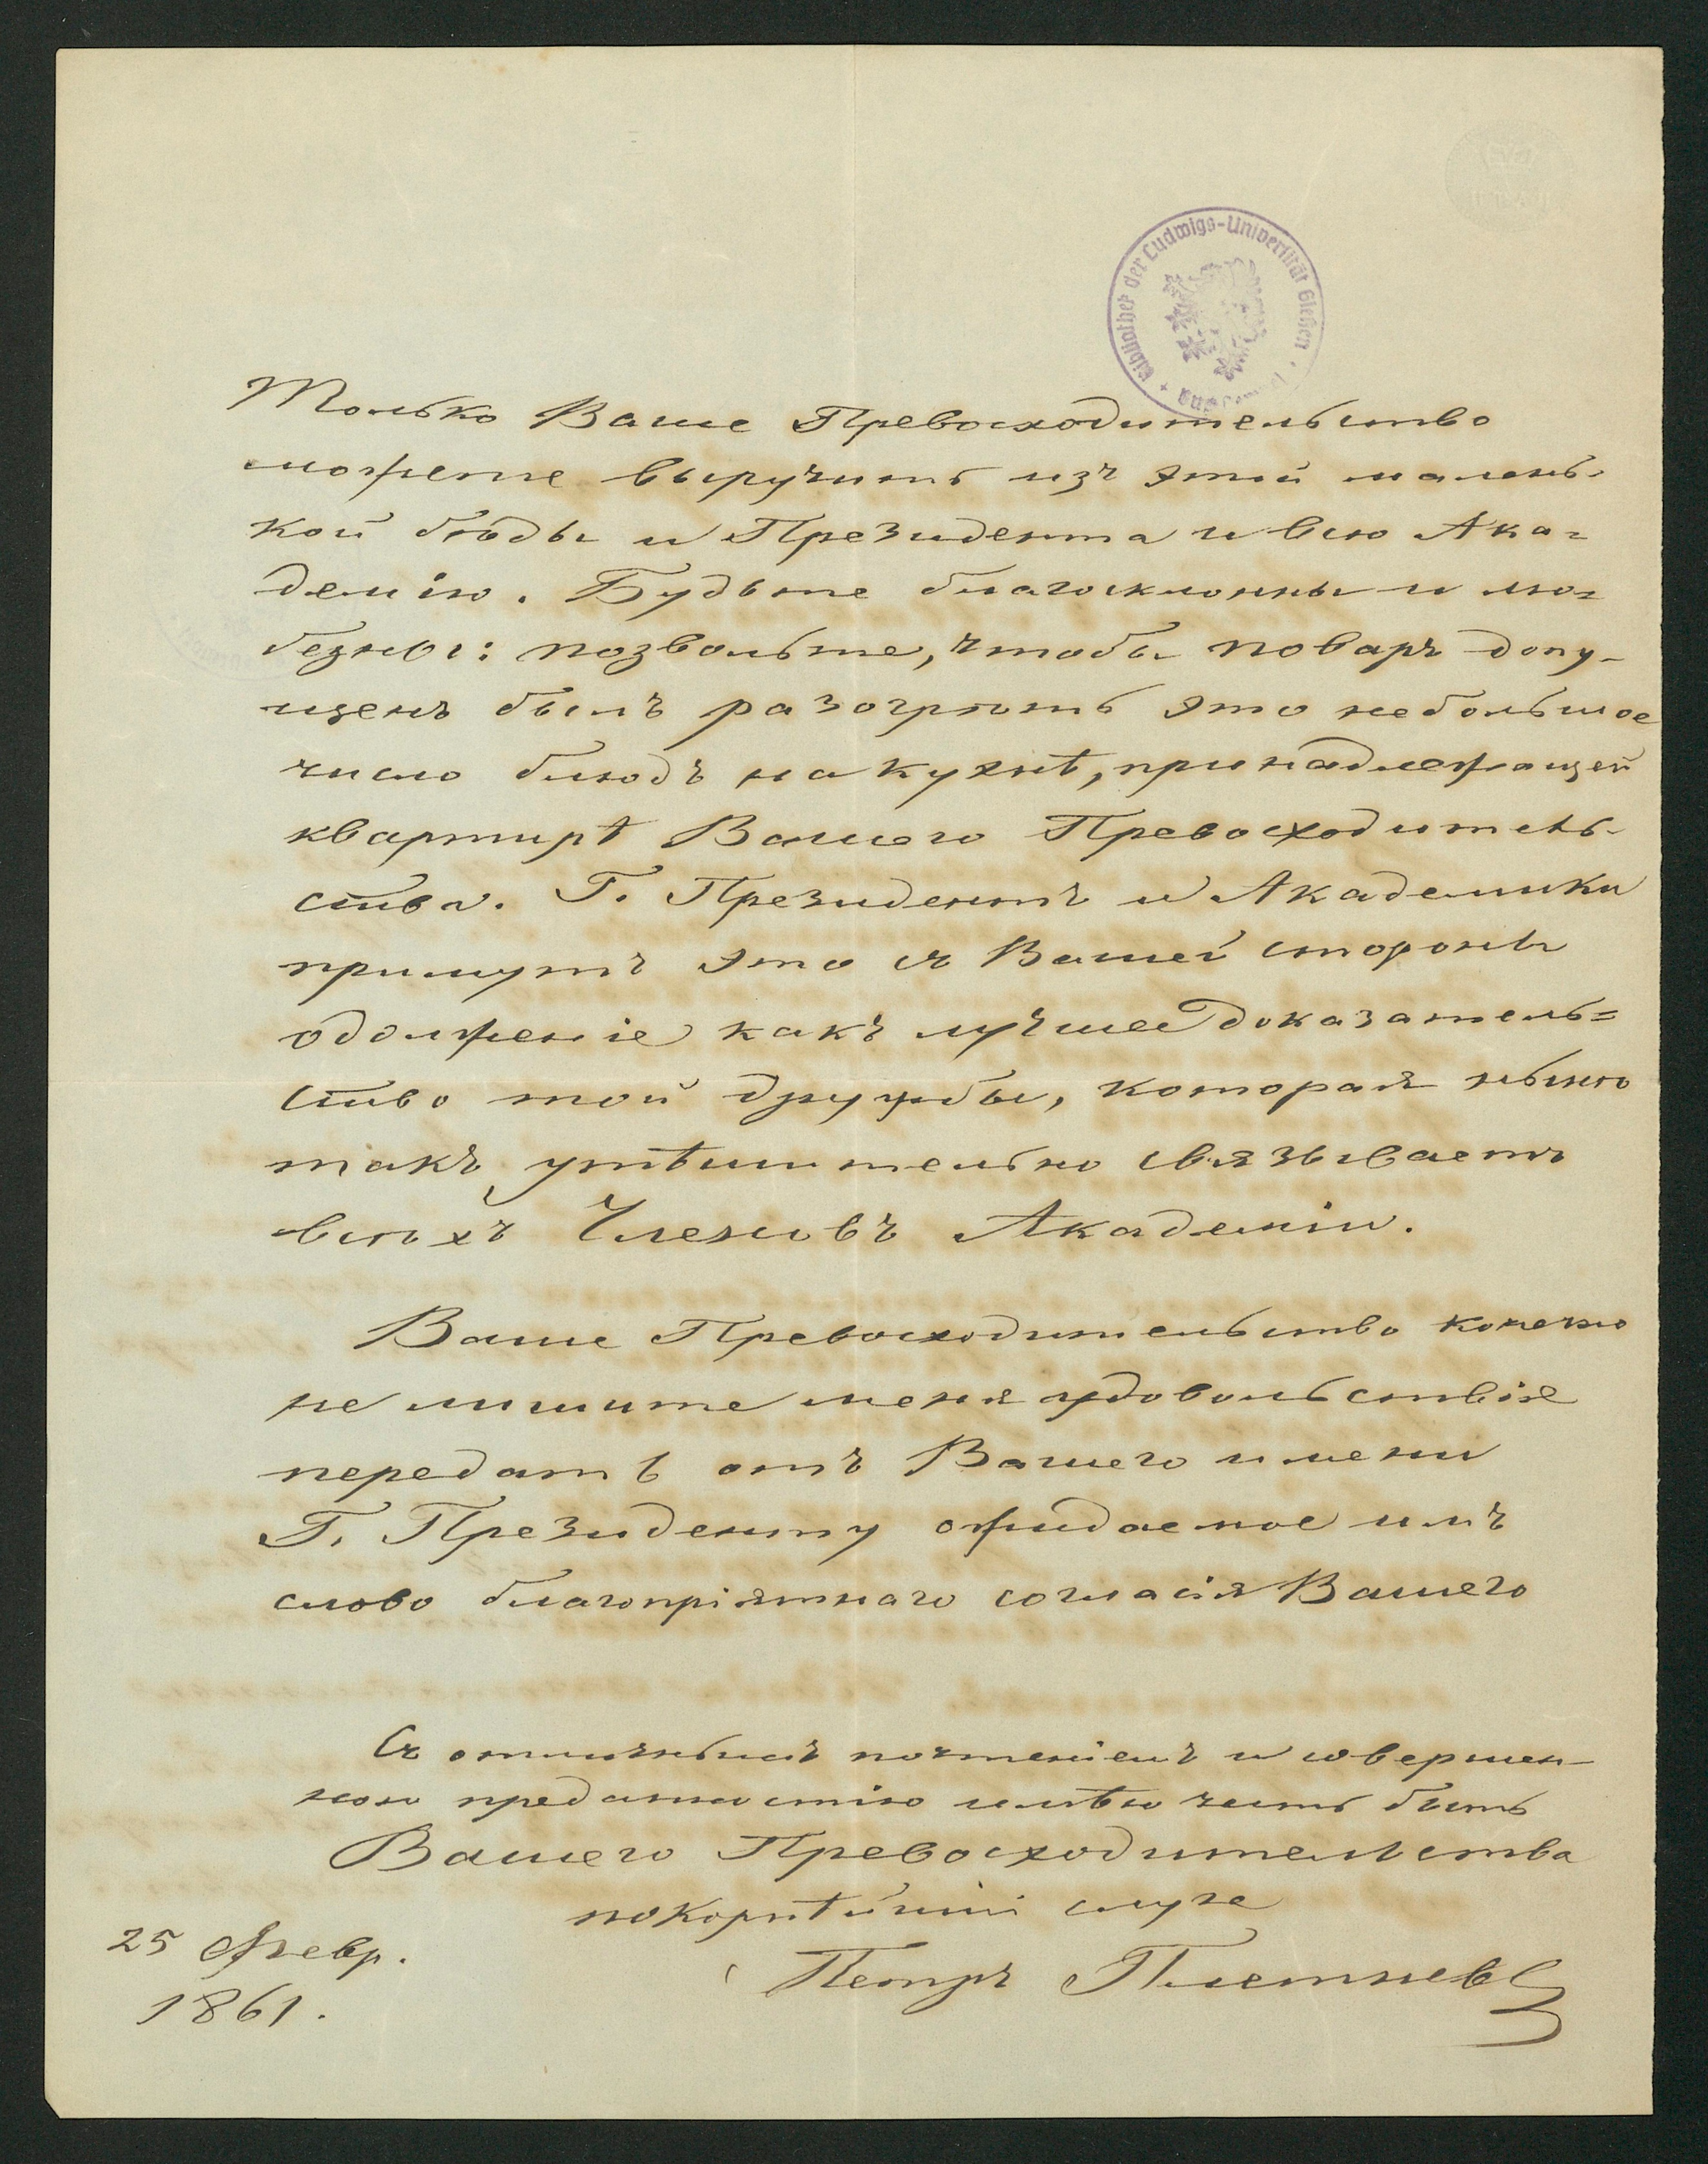 Bibliothek der Ludwigs-Universität Gießen
Только Ваше Превосходительство
можете выручить изъ этой малень-
кой бѣды и Президента и всю Ака=
демію. Будьте благосклонны и лю=
безны: позвольте, чтобы поваръ допу-
щенъ былъ разогрѣть это небольшое
число блюдъ на кухнѣ, принадлежащей
квартирѣ Вашего Превосходитель-
ства. Г. Президентъ и Академики
примутъ это съ Вашей стороны
одолженіе какъ лучшее доказатель=
ство той дружбы, которая нынѣ
такъ утѣшительно связываетъ
всѣхъ Членовъ Академіи.
Ваше Превосходительство конечно
не лишите меня удовольствія
передать отъ Вашего имени
Г. Президенту ожидаемое имъ
слово благопріятнаго согласія Вашего
Съ отличнымъ почтеніемъ и совершен-
ною преданностію имѣю честь быть
Вашего Превосходительства
покорнѣйшій слуга
Петръ Плетневъ
25 Февр.
1861.